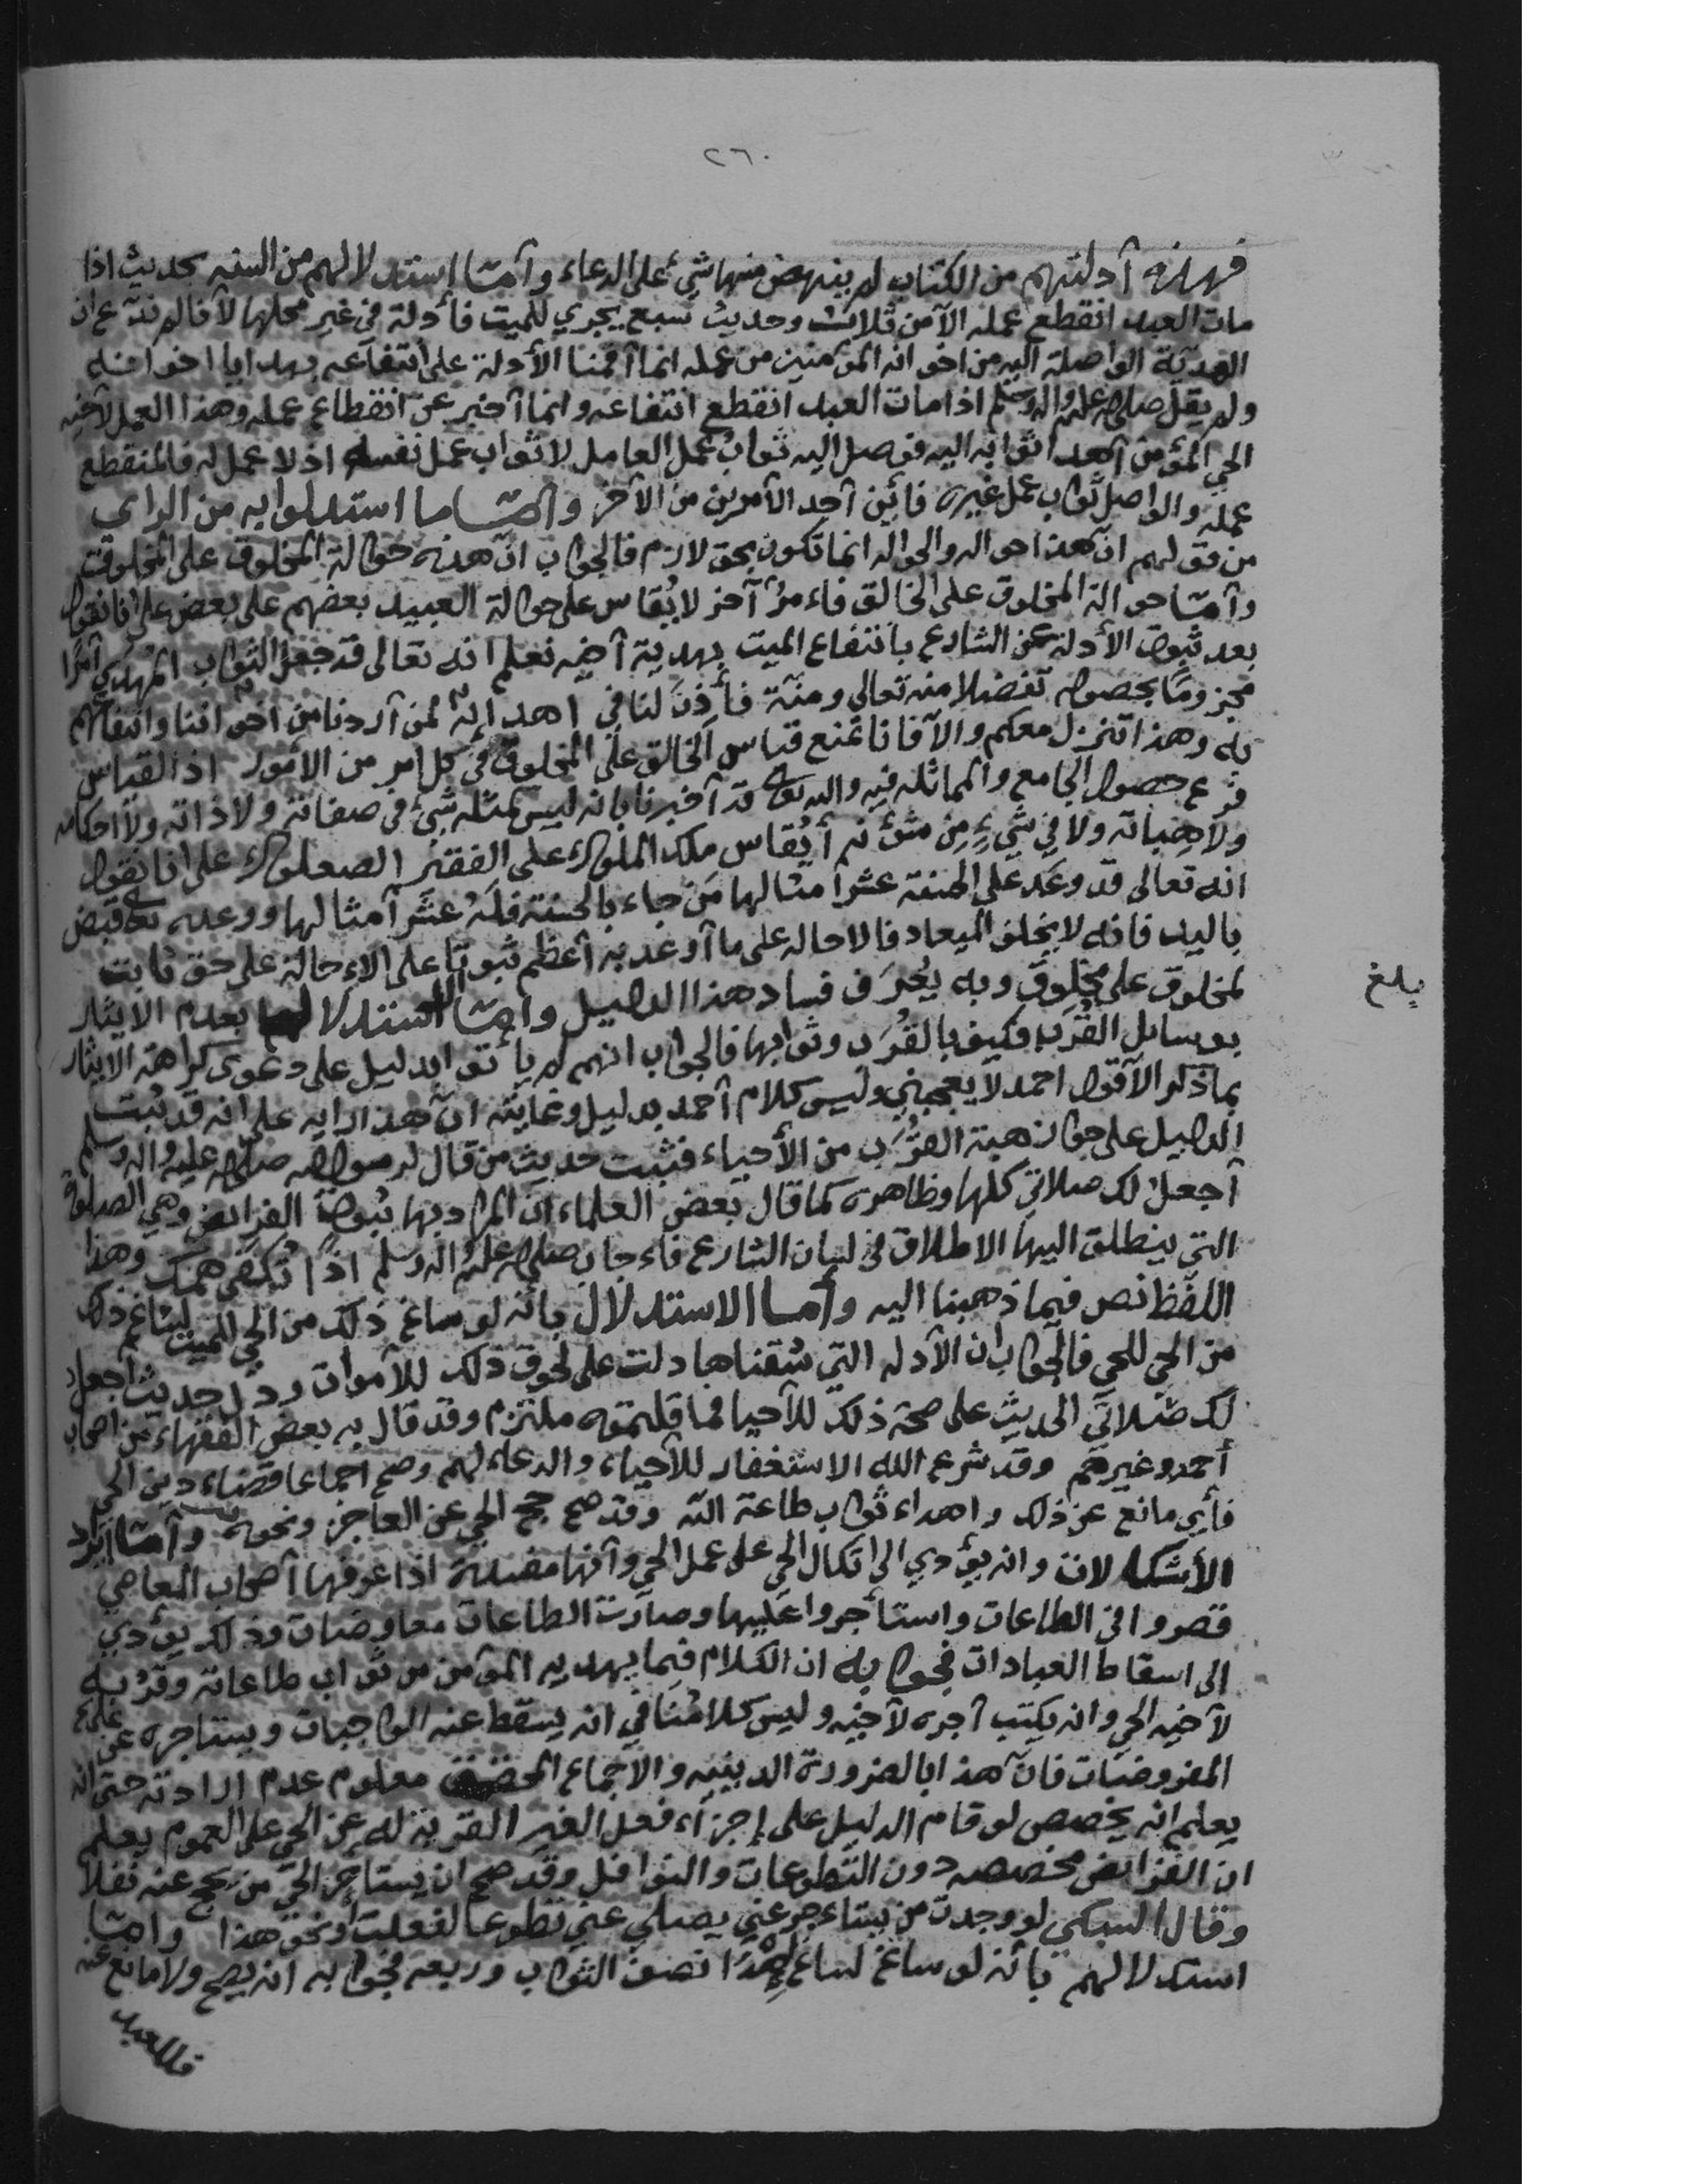 ٢٦٠
فهذه أدلتهم من الكتاب لم ينهض منها شيء على الدعاء وأمّا استدلالهم من السنه بحديث اذا
مات العبد انقطع عمله الا من ثلاث وحديث سبع يجري للميت فأدلة في غير محلها لأنا لم ندّع ان
الهدية الواصلة اليه من اخوانه المؤمنين من عمله انما أقمنا الأدلة على انتفاعه بهدايا اخوانه
ولم يقل صلى الله عليه واله وسلم اذا مات العبد انقطع انتفاعه وانما أخبر عن انقطاع عمله وهذا العمل لأخيه
الحي المؤمن أهدا ثوابه اليه فوصل اليه ثواب عمل العامل لا ثواب عمل نفسه اذ لا عمل له فالمنقطع
عمله والواصل ثواب عمل غيره فأين أحد الأمرين من الآخر وأمّا ما استدلوا به من الراي
من قولهم ان هذا حواله والحواله انما تكون بحق لازم فالجواب انّ هذه حوالة المخلوق على المخلوق
وأمّا حوالة المخلوق على الخالق فاءمرٌ آخر لا يُقاس على حوالة العبيد بعضهم على بعض على انا نقول
بعد ثبوت الأدلة عن الشارع بانتفاع الميت بهدية أخيه نعلم انه تعالى قد جعل الثواب المُهدي أمرًا
مجزومًا بحصوله تفضلا منه تعالى ومنّة فأذِنَ لنا في اهدائه لمن أردنا من اخواننا وانتفاعهم
به وهذا تنزل معكم والا فانا نمنع قياس الخالق على المخلوق في كل امر من الأمور اذ القياس
فرع حصول الجامع والمماثله فيه والله تعالى قد أخبرنا بانه ليس كمثله شيء في صفاته ولا ذاته ولا احكامه
ولا هباته ولا في شيءٍ مِن شؤنه أيُقاس ملك الملوك على الفقير الصعلوك على انا نقول
انه تعالى قد وعَد على الحسنة عشر أمثالها مَن جاء بالحسنة فلَهُ عشر أمثالها ووعده تعالى قبض
باليد فانه لا يخلف الميعاد فالاحاله على ما أوعد به أعظم ثبوتًا على الإحالة على حق ثابت
لمخلوق على مخلوق وبه يُعرَف فساد هذا الدليل وأمّا استدلالهم بعدم الايثار
بوسائل القُرَب فكيف بالقُرَب وثوابها فالجواب انهم لم يأتوا بدليل على دعوى كراهة الايثار
بما ذكر الا قول احمد لا يعجبني وليس كلام أحمد بدليل وغايته انّ هذا رايه على انه قد ثبت
الدليل على جواز هبة القُرَب من الأحياء فثبت حديث من قال لرسول الله صلى الله عليه واله وسلم
أجعل لك صلاتي كلها وظاهره كما قال بعض العلماء ان المراد بها ثواب الفرائض وهي الصلوة
التي ينطلق اليها الاطلاق في لسان الشارع فاءجاب صلى الله عليه واله وسلم اذًا تُكفى همك وهذا
اللفظ نص فيما ذهبنا اليه وأما الاستدلال بأنه لو ساغ ذلك من الحي للميت لساغ ذلك
من الحي للحي فالجواب ان الأدله التي سُقناها دلت على لحوق ذلك للأموات ودلّ حديث اجعل
لك صلاتي الحديث على صحة ذلك للأحيا فما قلتموه ملتزم وقد قال به بعض الفقهاء من اصحاب
أحمد وغيرهم وقد شرع الله الاستغفار للأحياء والدعاء لهم وصح اجماعا قضاء دين الحي
فأي مانع عن ذلك واهداء ثواب طاعة الله وقد صح حج الحي عن العاجز ونحوه وأمّا ايراد
الأشكالات وانه يؤدي الى اتكال الحي على عمل الحي وأنها مفسدة اذا عرفها أصحاب المعاصي
قصروا في الطاعات واستأجروا عليها وصارت الطاعات معاوضات وذلك يؤدي
الى اسقاط العبادات فجوابه ان الكلام فيما يهديه المؤمن من ثواب طاعاته وقُرَبه
لأخيه الحي وانه يكتب أجره لأخيه وليس كلامُنا في انه يسقط عنه الواجبات ويستاجره على عمل
المفروضات فانّ هذا بالضرورة الدينيه والاجماع معلوم عدم ارادته حتى انه
يعلم انه يخصص لو قام الدليل على إجزآء فعل الغير القربة له عن الحي على العموم يعلم
ان الفرائض مخصصه دون التطوعات والنوافل وقد صح ان يستاجر الحيّ من يحج عنه نفلا
وقال السبكي لو وجدت من يستاءجرعني يصلي عني تطوعا لفعلت أونحو هذا وأمّا
استدلالهم بأنه لو ساغ لساغ إهدا نصف الثواب وربعه فجوابه انه يصح ولا مانع عنه
فللعبد
بلغ